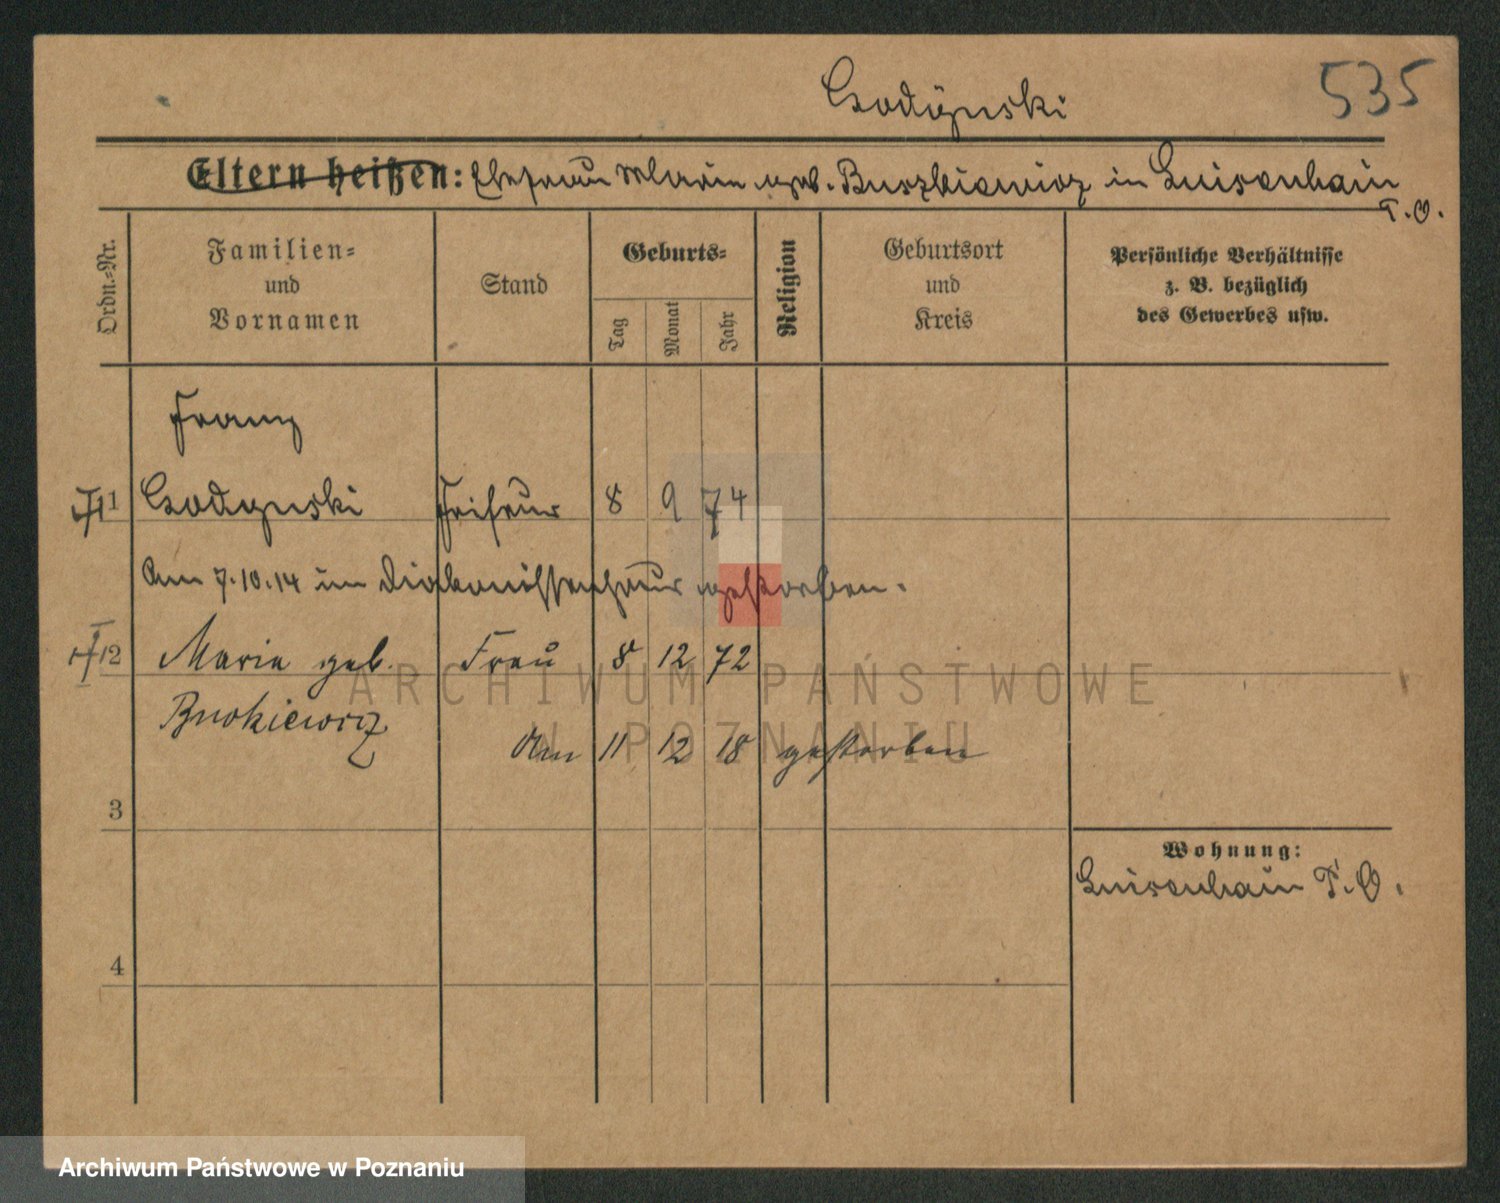 Godynski
535
Eltern heißen: Ehefrau Maria geb. Buszkiewicz in Luisenhain
T. O.
Ordn.-Nr.
Familien-
und
Vornamen
Stand
Geburts-
Tag
Monat
Jahr
Religion
Geburtsort
und
Kreis
Persönliche Verhältnisse
z. B. bezüglich
des Gewerbes usw.
Franz
1 Godynski Friseur 8 9 74
Am 7.10.14 im Diakonissenhaus gestorben.
2 Maria geb. Frau 8 12 72
ARCHIWUM PAŃSTWOWE
W POZNANIU
Am 11 12 18 gestorben
3
Wohnung:
Luisenhain T. O.
4
Archiwum Państwowe w Poznaniu